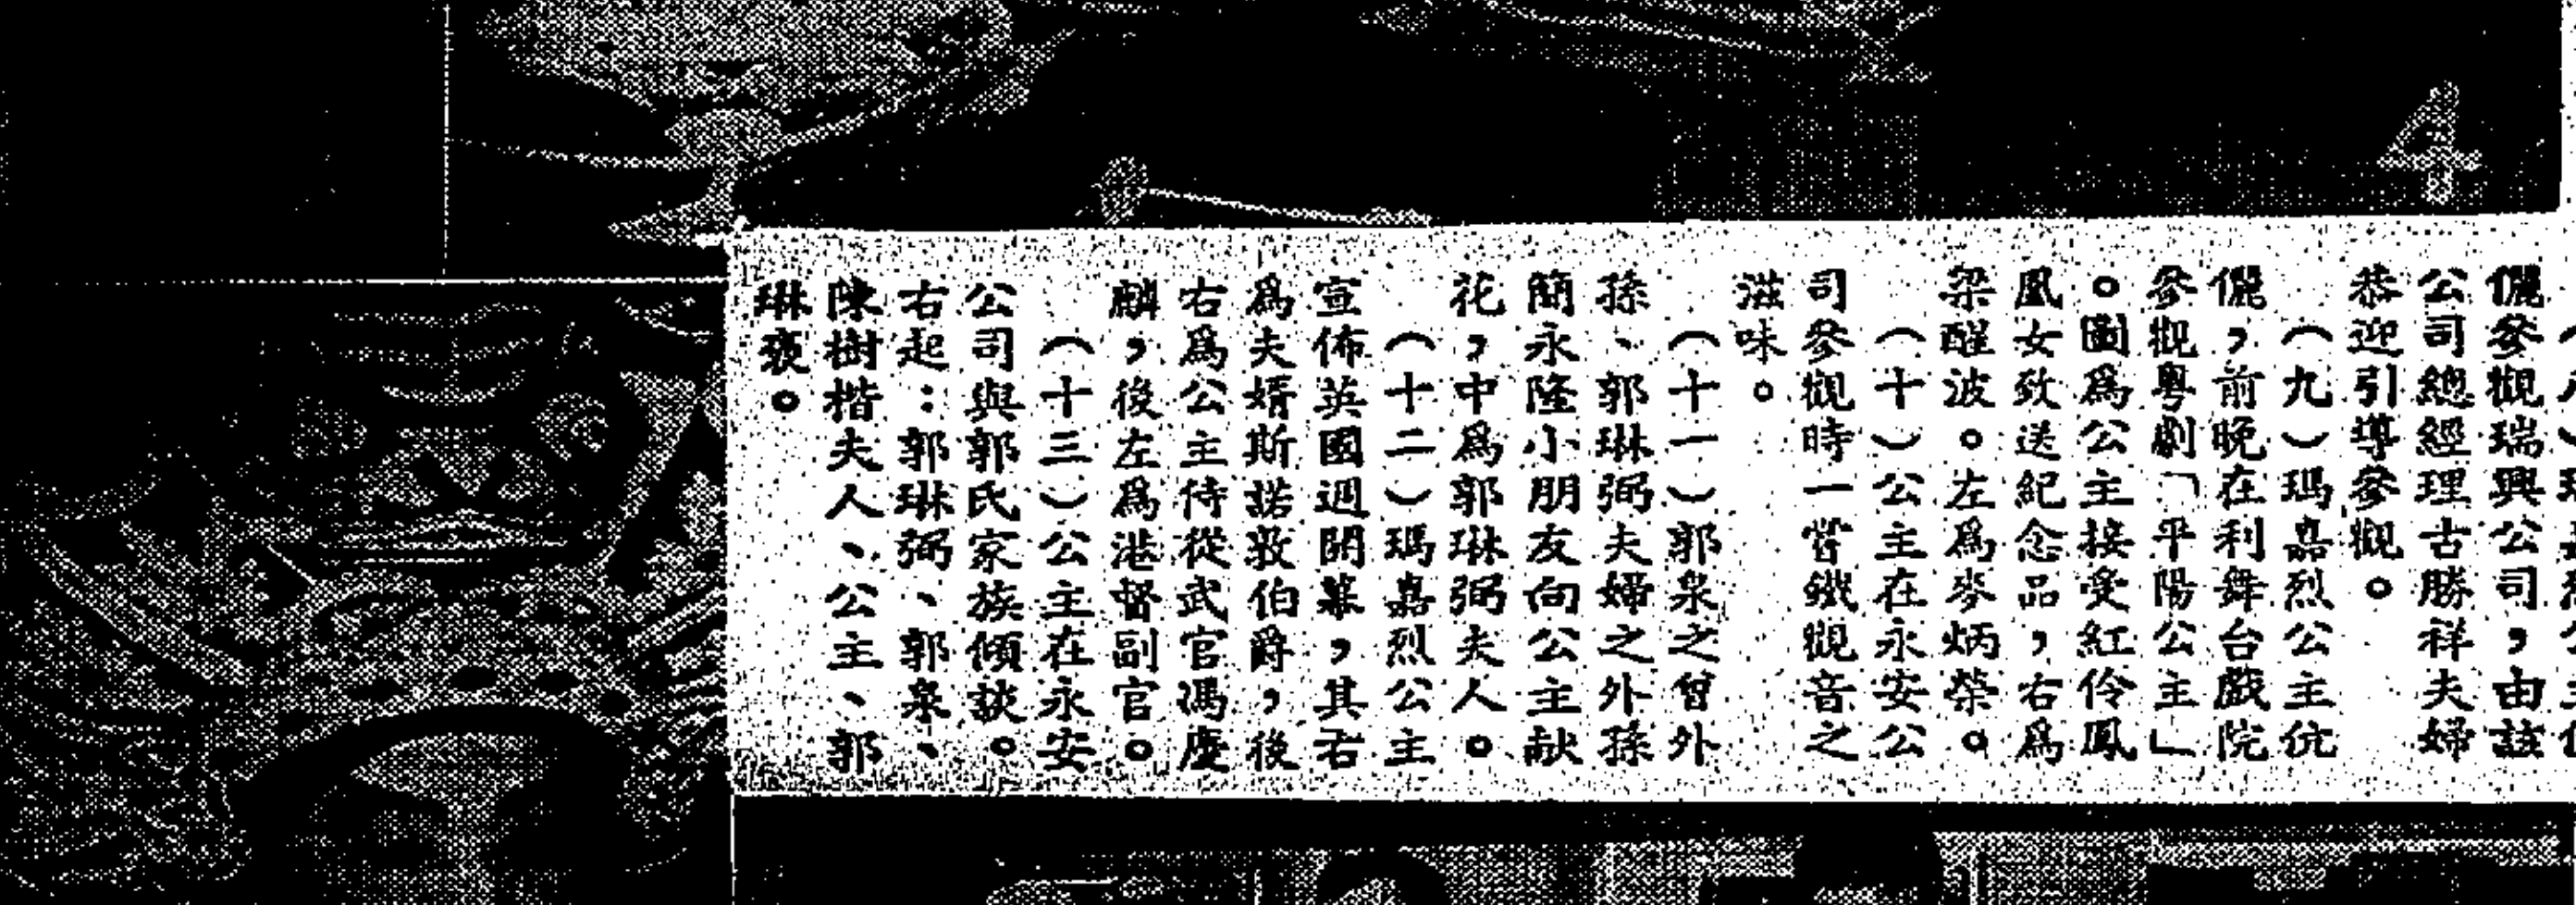 4
儷參觀瑞興公司，由該
公司總經理古勝祥夫婦
恭迎引導參觀。
（九）瑪嘉烈公主伉
儷，前晚在利舞台戲院
參觀粵劇「平陽公主」
。圖爲公主接受紅伶鳳
凰女致送紀念品，右爲
梁醒波。左爲麥炳榮。
（十）公主在永安公
司參觀時一嘗鐵觀音之
滋味。
（十一）郭泉之曾外
孫、郭琳弼夫婦之外孫
簡永隆小朋友向公主献
花，中爲郭琳弼夫人。
（十二）瑪嘉烈公主
宣佈英國週開幕，其右
爲夫婿斯諾敦伯爵，後
右爲公主侍從武官馮慶
麟，後左爲港督副官。
（十三）公主在永安
公司與郭氏家族傾談。
右起：郭琳弼、郭泉、
陳樹楷夫人、公主、郭
琳褒。